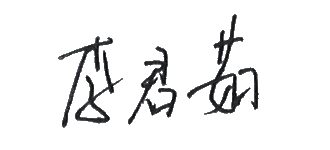 李君茹